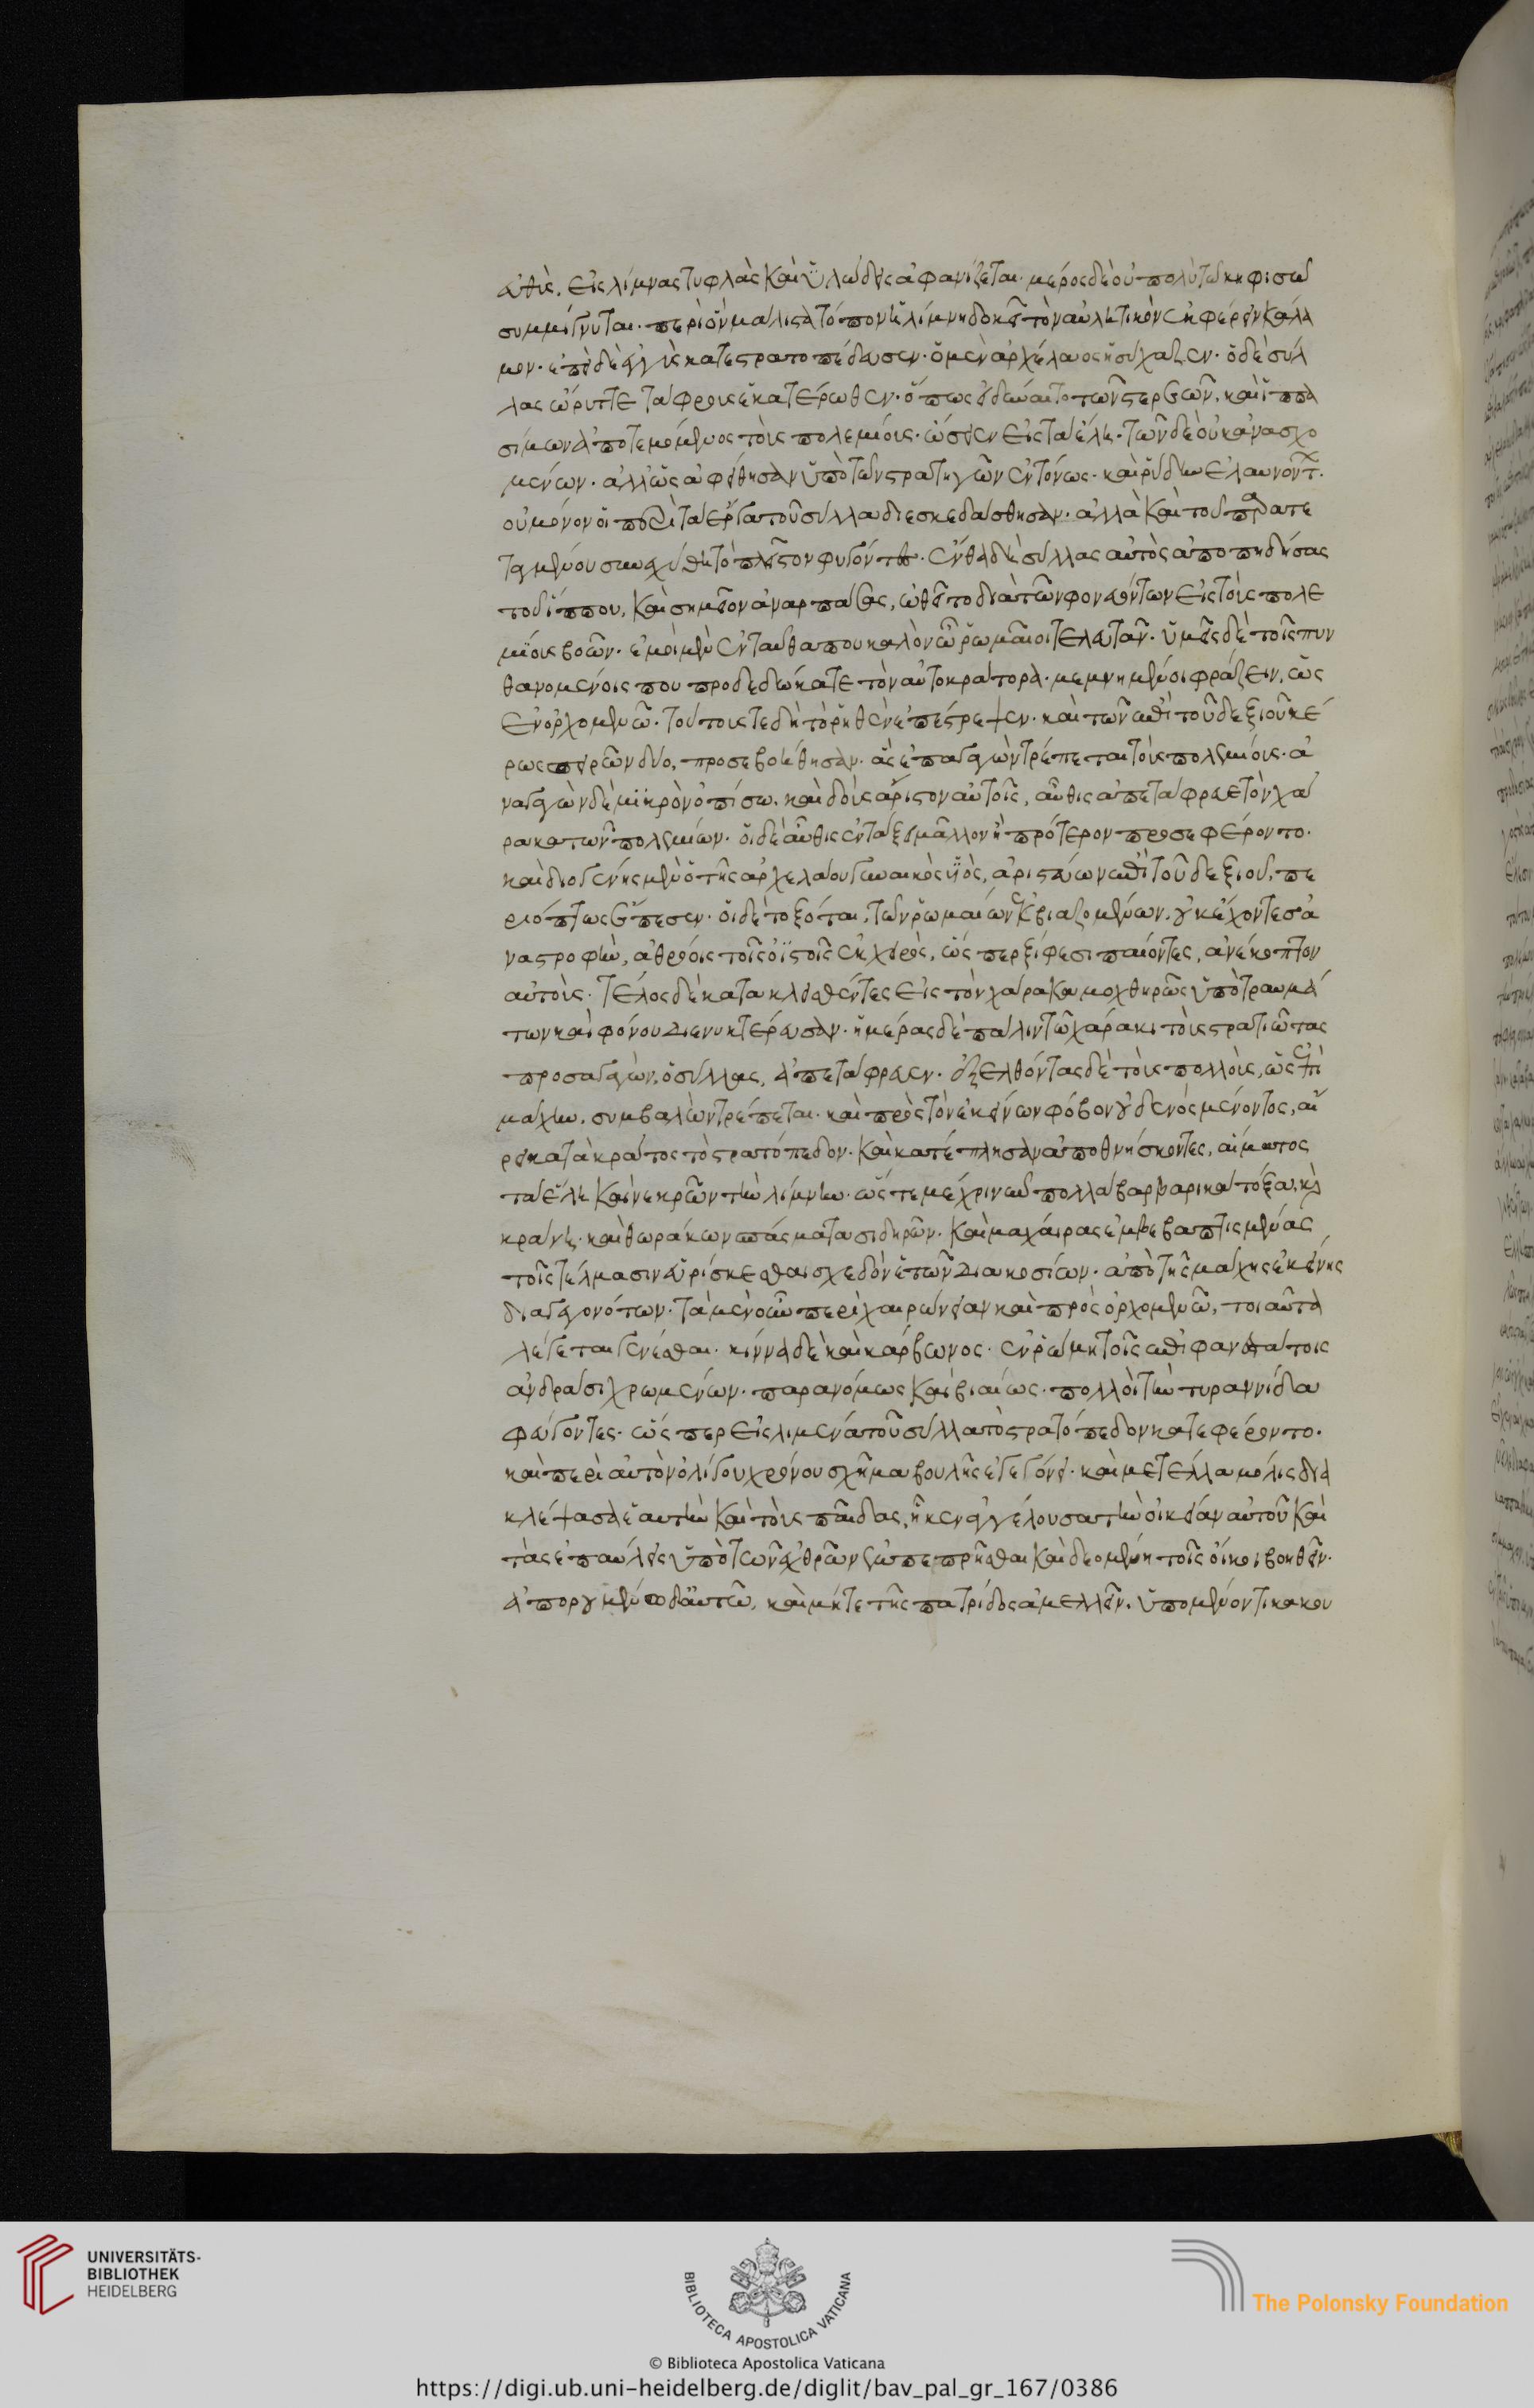 εὐθὺς, εἰς λίμνας τυφλὰς καὶ ὑλώδεις ἀφανίζεται. μέρος δὲ οὐ πολὺ τῶ κηφισῶ
συμμίγνυται. περὶ ὃν μάλιστα τόπον ἡ λίμνη δοκεῖ τὸν αὐλητικὸν ἐκφέρειν κάλα
μον. ἐπεὶ δὲ ἐγγὺς κατεστρατοπέδευσεν. ὁ μὲν ἀρχέλαος ἡσύχαζεν. ὁ δὲ σύλ
λας ὤρυττε τάφρους ἑκατέρωθεν. ὅπως εἰ δύναιτο τῶν στερεῶν, καὶ ἱππα
σίμων ἀποτεμόμενος τοὺς πολεμίους. ὤσειεν εἰς τὰ ἕλη. τῶν δὲ οὐκ ἀνασχο
μένων. ἀλλ' ὡς ἀφείθησαν ὑπὸ τῶν στρατηγῶν ἐντόνως. καὶ ῥύδην ἐλαυνόντ.
οὐ μόνον οἱ περὶ τὰ ἔργα τοῦ σύλλα διεσκεδάσθησαν. ἀλλὰ καὶ τοῦ παρατε
ταγμένου συνεχύθη τὸ πλεῖστον φυγόντος. ἔνθα δὴ σύλλας αὐτὸς ἀποπηδήσας
τοῦ ἵππου, καὶ σημεῖον ἀναρπάσας, ὠθεῖτο διὰ τῶν φευγόντων εἰς τοὺς πολε
μίους βοῶν. ἐμοὶ μὲν ἐνταῦθα που καλὸν ὦ ῥωμαῖοι τελευτᾶν. ὑμεῖς δὲ τοῖς πυν
θανομένοις που προδεδώκατε τὸν αὐτοκράτορα. μεμνημένοι φράζειν, ὡς
ἐν ὀρχομενῶ. τούτους τε δὴ τὸ ῥηθὲν ἐπέστρεψεν. καὶ τῶν ἐπὶ τοῦ δεξιοῦ κέ
ρως σπειρῶν δύο, προσεβοήθησαν. ἃς ἐπαγαγὼν τρέπεται τοὺς πολεμίους. ἀ
ναγαγὼν δὲ μικρὸν ὀπίσω. καὶ δοὺς ἄριστον αὐτοῖς, αὖθις ἀπετάφρευε τὸν χά
ρακα τῶν πολεμίων. οἱ δὲ αὖθις ἐν τάξει μᾶλλον ἢ πρότερον προσεφέροντο.
καὶ διογένης μὲν ὁ τῆς ἀρχελάου γυναικὸς υἱὸς, ἀριστεύων ἐπὶ τοῦ δεξιοῦ, πε
ριόπτως ἔπεσεν. οἱ δὲ τοξόται, τῶν ῥωμαίων ἐκβιαζομένων. οὐκ ἔχοντες ἀ
ναστροφὴν, ἀθρόοις τοῖς ὀϊστοῖς ἐκ χειρὸς, ὥσπερ ξίφεσι παίοντες, ἀνέκοπτον
αὐτούς. τέλος δὲ κατακλεισθέντες εἰς τὸν χάρακα μοχθηρῶς ὑπὸ τραυμά
των καὶ φόνου διενυκτέρευσαν. ἡμέρας δὲ πάλιν τῶ χάρακι τοὺς στρατιώτας
προσαγαγὼν, ὁ σύλλας, ἀπετάφρευεν. ἐξελθόντας δὲ τοὺς πολλοὺς, ὡς ἐπὶ
μάχην, συμβαλὼν τρέπεται. καὶ πρὸς τὸν ἐκείνων φόβον οὐδενὸς μένοντος, αἱ
ρεῖ κατὰ κράτος τὸ στρατόπεδον. καὶ κατέπλησαν ἀποθνήσκοντες, αἵματος
τὰ ἕλη καὶ νεκρῶν τὴν λίμνην. ὥστε μέχρι νῦν πολλὰ βαρβαρικὰ τόξα, καὶ
κράνη. καὶ θωράκων σπάσματα σιδηρῶν. καὶ μαχαίρας ἐμβεβαπτισμένας
τοῖς τέλμασιν εὑρίσκεσθαι σχεδὸν ἐτῶν διακοσίων. ἀπὸ τῆς μάχης ἐκείνης
διαγεγονότων. τὰ μὲν οὖν περὶ χαιρώνειαν καὶ πρὸς ὀρχομενῶ, τοιαῦτα
λέγεται γενέσθαι. κίννα δὲ καὶ κάρβωνος. ἐν ῥώμη τοῖς ἐπιφανεστάτοις
ἀνδράσι χρωμένων. παρανόμως καὶ βιαίως. πολλοὶ τὴν τυραννίδα
φεύγοντες. ὥσπερ εἰς λιμένα τοῦ σύλλα τὸ στρατόπεδον κατεφέροντο.
καὶ περὶ αὐτὸν ὀλίγου χρόνου σχῆμα βουλῆς ἐγεγόνει. καὶ μετέλλα μόλις δια
κλέψασα ἑαυτὴν καὶ τοὺς παῖδας, ἧκεν ἀγγέλουσα τὴν οἰκείαν αὐτοῦ καὶ
τὰς ἐπαύλεις ὑπὸ τῶν ἐχθρῶν ἐμπεπρῆσθαι καὶ δεομένη τοῖς οἴκοι βοηθεῖν.
ἀπορουμένω δ' αὐτῶ, καὶ μήτε τῆς πατρίδος ἀμελλεῖν. ὑπομένοντι κακου
UNIVERSITÄTS-
BIBLIOTHEK
HEIDELBERG
BIBLIOTECA APOSTOLICA VATICANA
The Polonsky Foundation
© Biblioteca Apostolica Vaticana
https://digi.ub.uni-heidelberg.de/diglit/bav_pal_gr_167/0386